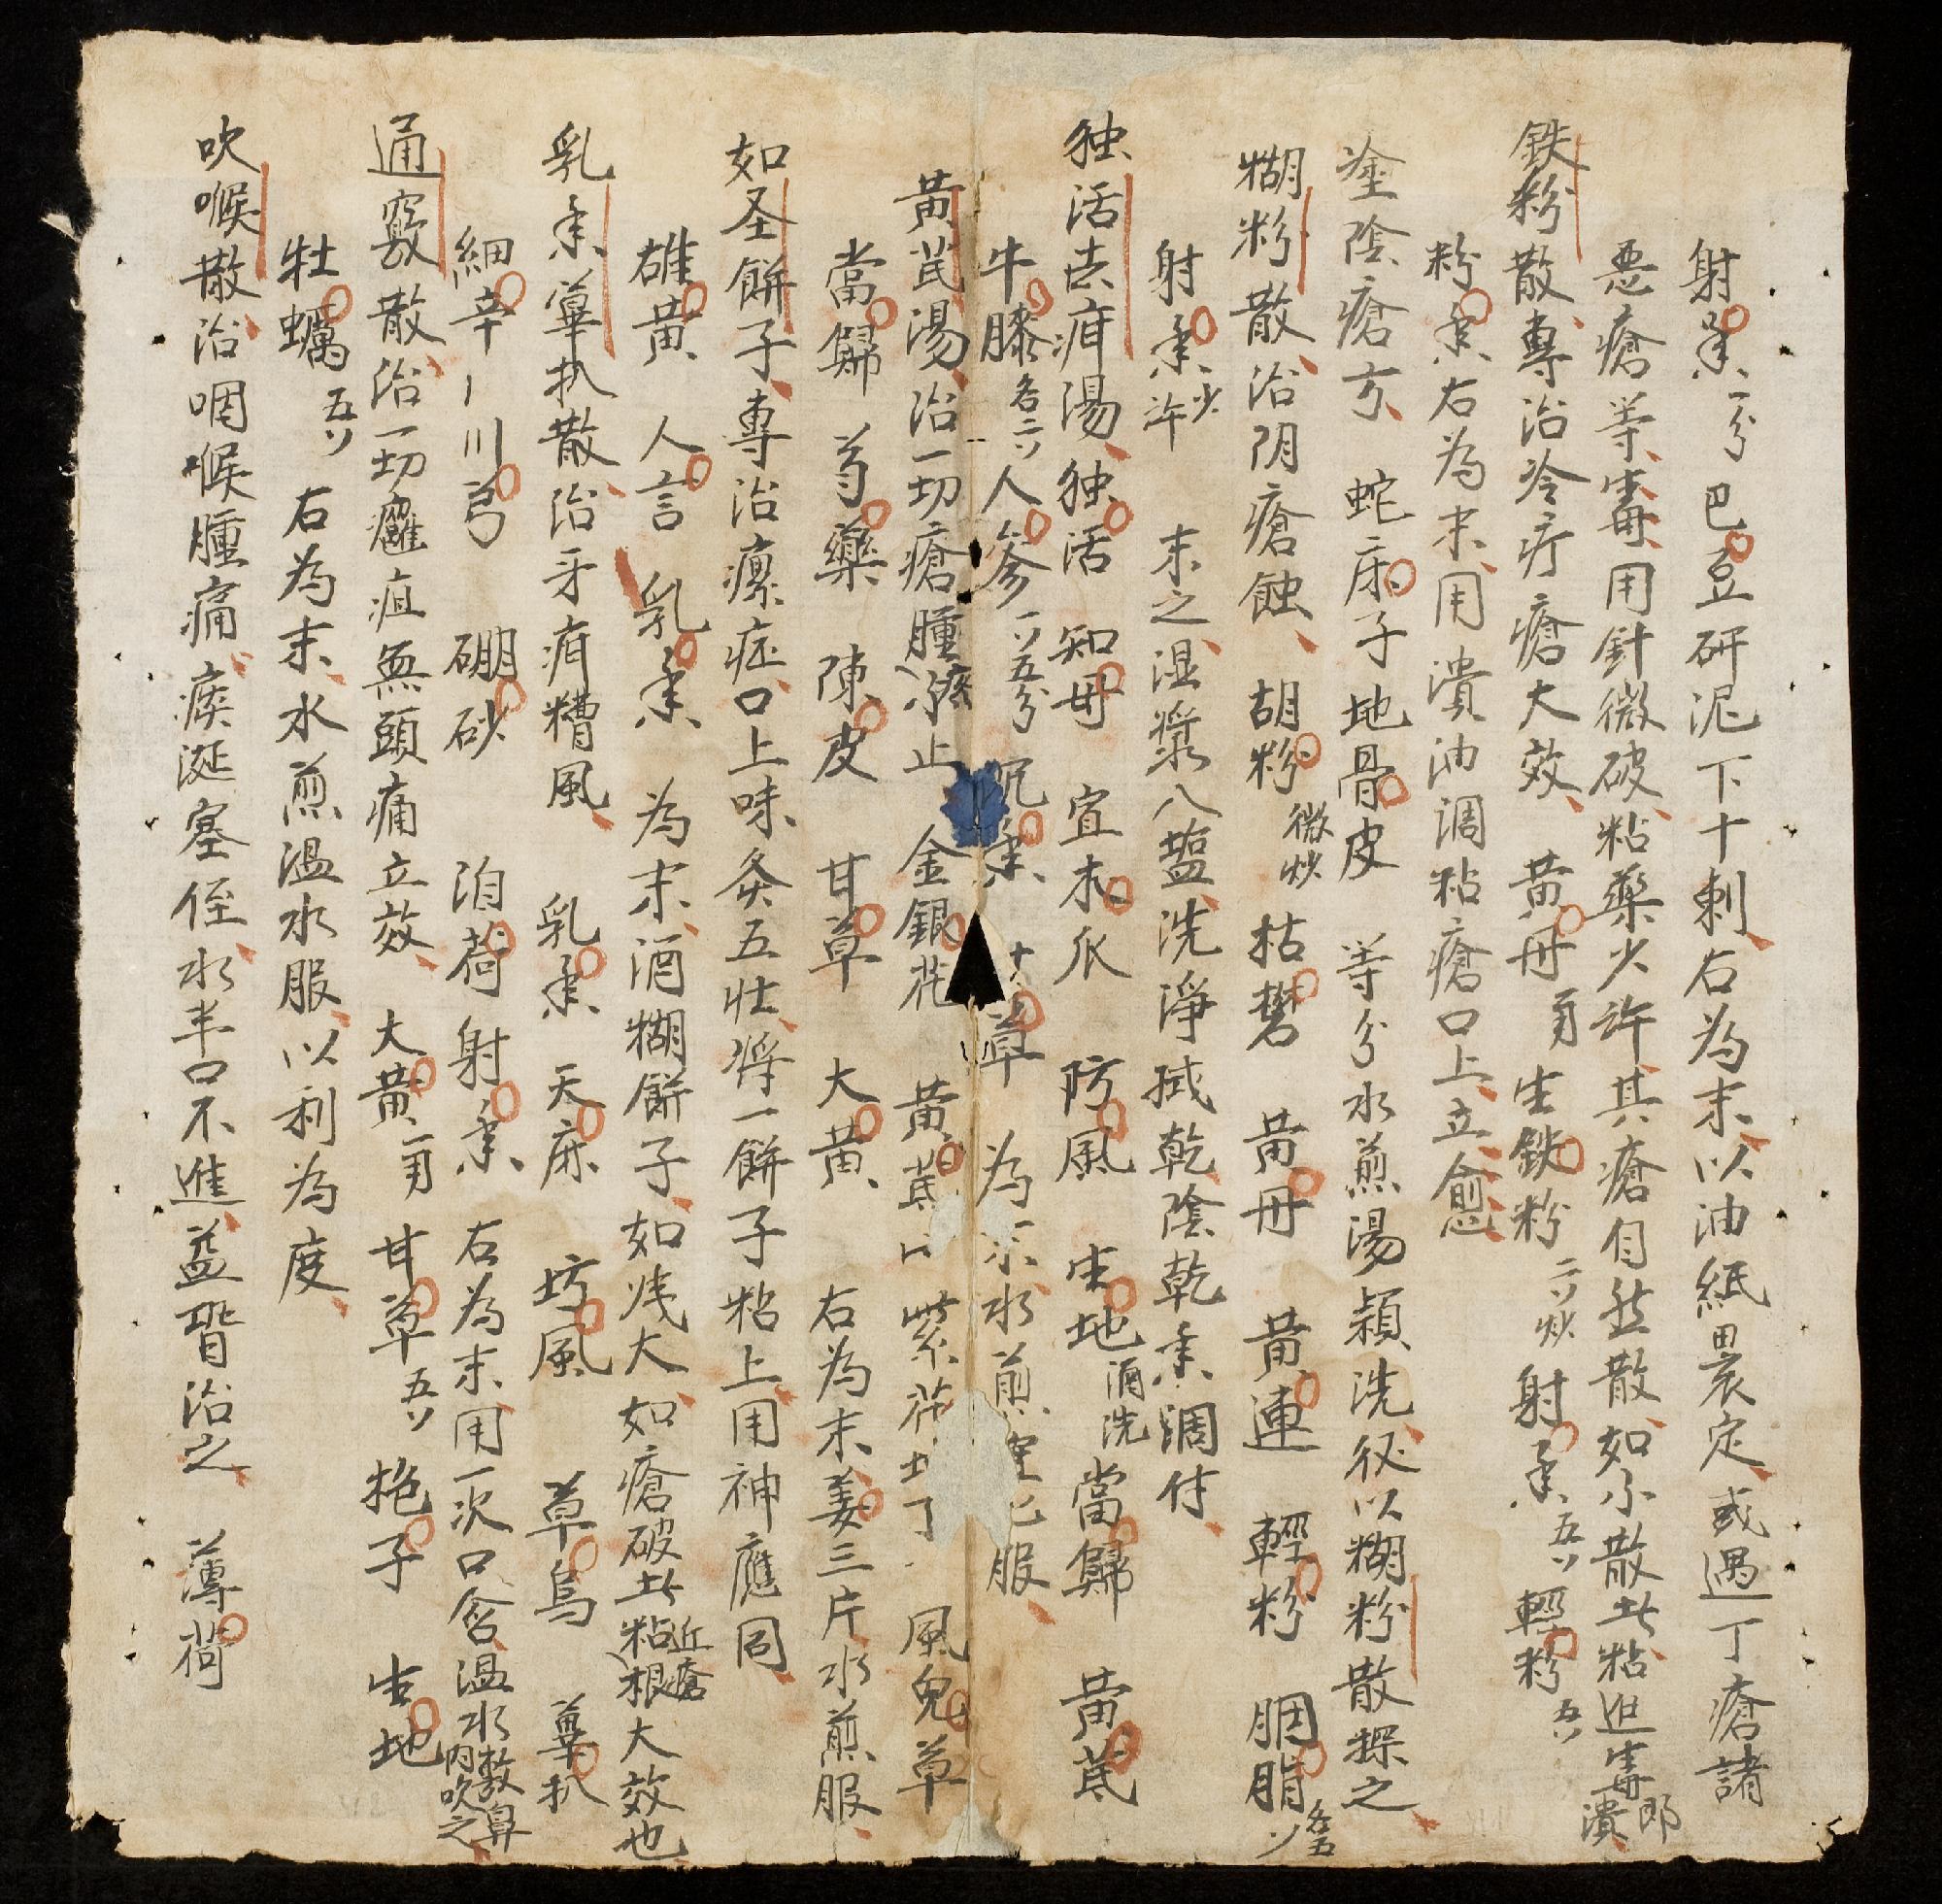 射香一分 巴豆研泥下十剌右為末以油紙裹定或遇丁瘡諸
悪瘡等毒用針微破粘藥少許其瘡自然散如不散此粘追毒即潰
鉄粉散專治冷疔瘡大效 黄丹 生鉄粉 二ソ炒 射香 五ソ 輕粉 五ソ
粉香右為末用清油調粘瘡口上立愈
塗陰瘡方 蛇床子 地骨皮 等分水煎湯頻洗後以糊粉散摻之
糊粉散治阴瘡蝕 胡粉 微炒 枯礬 黄丹 黄連 輕粉 胭脂 各五ソ
射香 少許 末之湿漿八塩洗淨拭乾陰乾香調付
独活去疳湯 独活 知母 宣木爪 防風 生地 酒洗 當歸 黄芪
牛膝 各二ソ 人參 一ソ五分 草 為末水煎 服
黄芪湯治一切瘡腫疼止 金銀花 黄 紫花地丁 風兒草
當歸 芍藥 陳皮 甘草 大黄 右為末姜三片水煎服
如圣餅子專治瘰症口上味灸五壮将一餅子粘上用神應同
雄黄 人言 乳香 為末酒糊餅子如戋大如瘡破此粘近瘡根大效也
乳香蓽扒散治牙疳糟風 乳香 天麻 坊風 草烏 蓽扒
細辛 川弓 硼砂 泊荷 射香 右為末用一次口含温水敷鼻内吹之
通竅散治一切癰疽無頭痛立效 大黄 甘草 五ソ 梔子 生地
牡蠣 五ソ 右為末水煎温水服以利為度
吹喉散治咽喉腫痛痰涎塞侄水半口不進並皆治之 薄荷